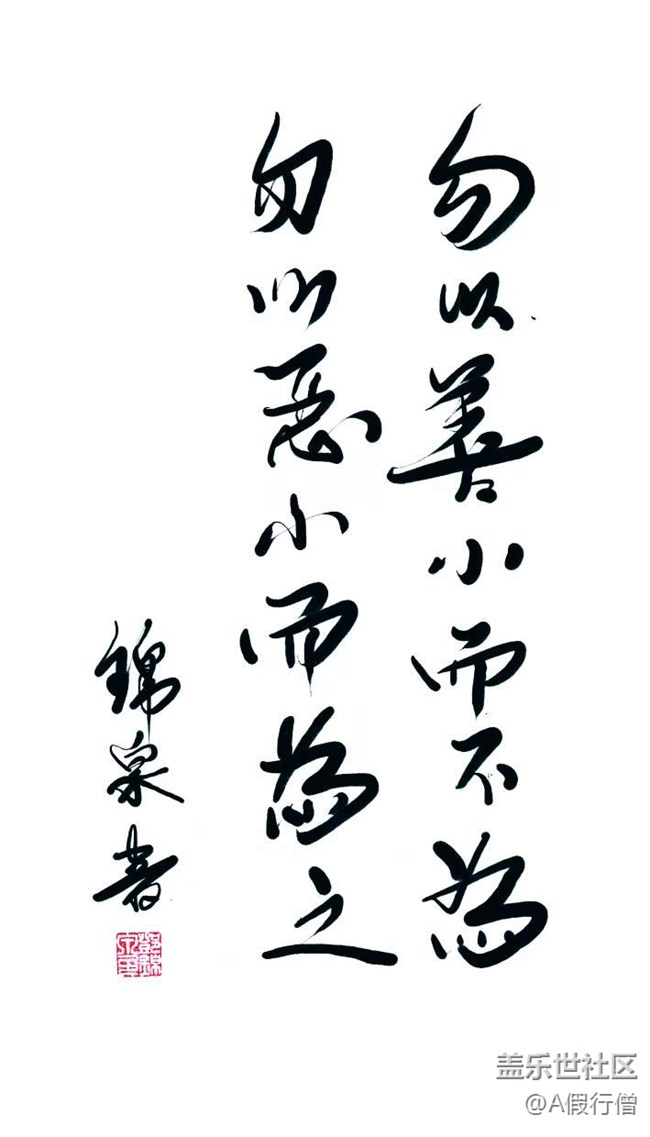 勿以善小而不為
勿以惡小而為之
錦泉書
盖乐世社区
@A假行僧